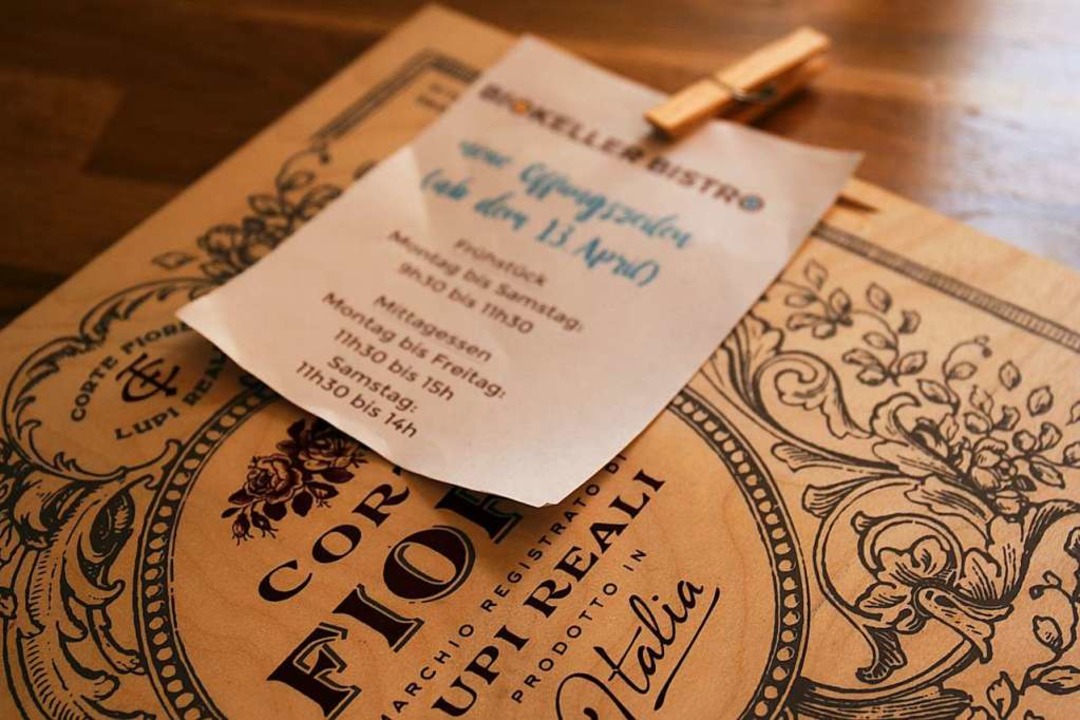 BIOKELLER BISTRO
neue Öffnungszeiten
(ab dem 13 April)
Frühstück
Montag bis Samstag:
9h30 bis 11h30
Mittagessen
Montag bis Freitag:
11h30 bis 15h
Samstag:
11h30 bis 14h
CORTE FIORE
LUPI REALI
CORTE
FIOR
MARCHIO REGISTRATO DI
LUPI REALI
PRODOTTO IN
Italia